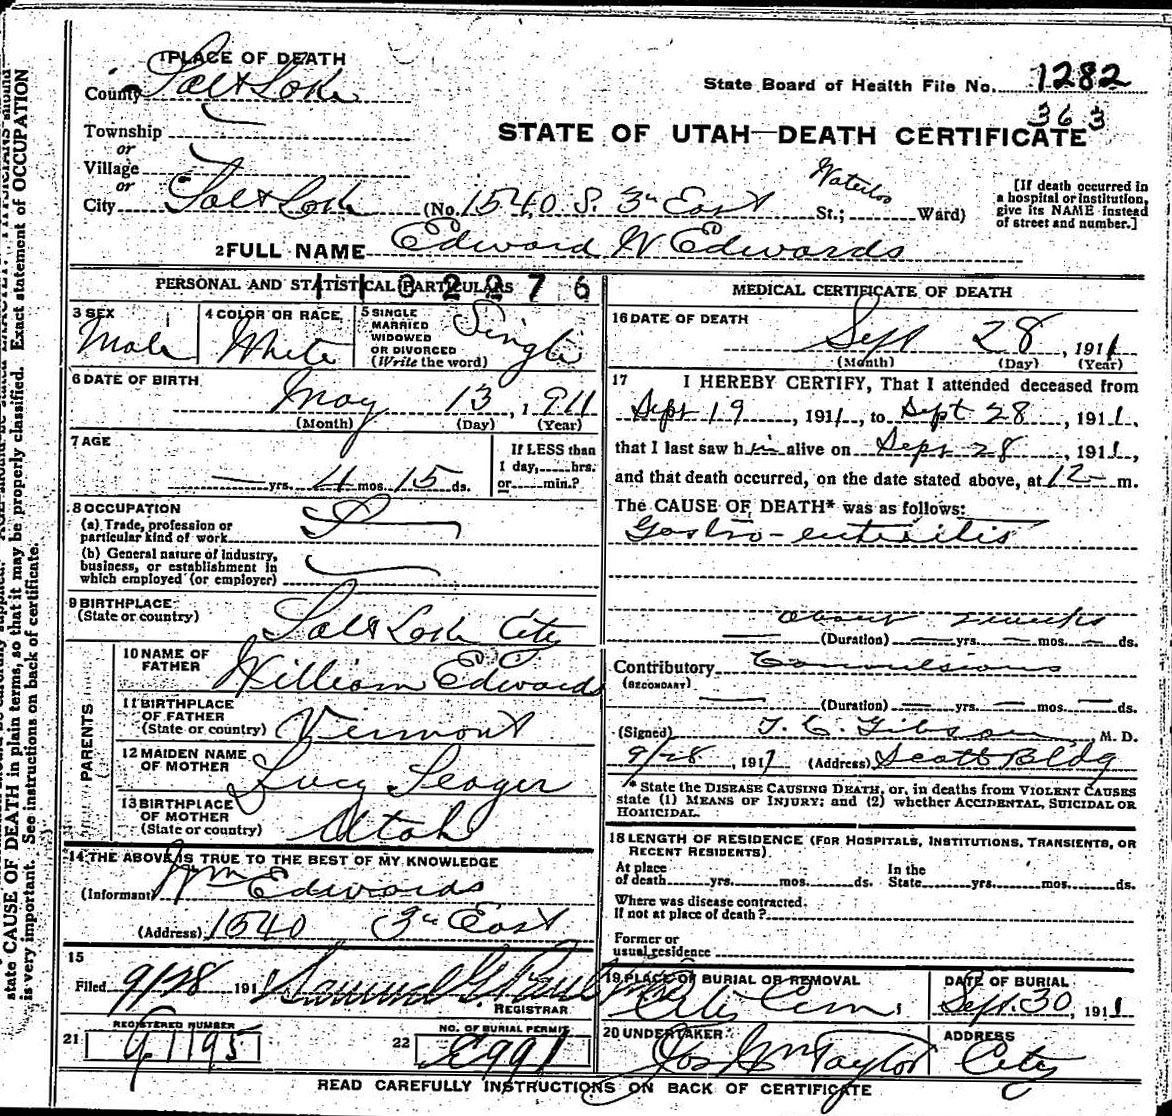 state CAUSE OF DEATH in plain terms, so that it may be properly classified. Exact statement of OCCUPATION
is very important. See instructions on back of certificate.
1 PLACE OF DEATH
County Salt Lake
State Board of Health File No. 1282
363
Township
or
STATE OF UTAH—DEATH CERTIFICATE
Village
or
City Salt Lake (No. 1540 S. 3rd East St.; Waterloo Ward)
[If death occurred in
a hospital or institution,
give its NAME instead
of street and number.]
2 FULL NAME Edward W Edwards
1102276
PERSONAL AND STATISTICAL PARTICULARS
3 SEX
Male
4 COLOR OR RACE
White
5 SINGLE
MARRIED
WIDOWED
OR DIVORCED
(Write the word)
Single
6 DATE OF BIRTH
May 13, 1911
(Month) (Day) (Year)
7 AGE
— yrs. 4 mos. 15 ds.
If LESS than
1 day,....hrs.
or....min.?
8 OCCUPATION
(a) Trade, profession or
particular kind of work
(b) General nature of industry,
business, or establishment in
which employed (or employer)
9 BIRTHPLACE
(State or country)
Salt Lake City
PARENTS
10 NAME OF
FATHER
William Edwards
11 BIRTHPLACE
OF FATHER
(State or country)
Vermont
12 MAIDEN NAME
OF MOTHER
Lucy Seager
13 BIRTHPLACE
OF MOTHER
(State or country)
Utah
14 THE ABOVE IS TRUE TO THE BEST OF MY KNOWLEDGE
(Informant) Wm Edwards
(Address) 1540 3rd East
15
Filed 9/28 191
Samuel G. Paul
REGISTRAR
21 REGISTERED NUMBER
G1195
22 NO. OF BURIAL PERMIT
E991
MEDICAL CERTIFICATE OF DEATH
16 DATE OF DEATH
Sept 28, 1911
(Month) (Day) (Year)
17 I HEREBY CERTIFY, That I attended deceased from
Sept 19, 1911, to Sept 28, 1911,
that I last saw him alive on Sept 28, 1911,
and that death occurred, on the date stated above, at 12— m.
The CAUSE OF DEATH* was as follows:
Gastro-enteritis
about 2 weeks
(Duration) — yrs. — mos. — ds.
Contributory Convulsions
(SECONDARY)
(Duration) — yrs. — mos. — ds.
(Signed) T. C. Gibson, M. D.
9/28, 1911 (Address) Scott Bldg
* State the DISEASE CAUSING DEATH, or, in deaths from VIOLENT CAUSES
state (1) MEANS OF INJURY; and (2) whether ACCIDENTAL, SUICIDAL OR
HOMICIDAL.
18 LENGTH OF RESIDENCE (FOR HOSPITALS, INSTITUTIONS, TRANSIENTS, OR
RECENT RESIDENTS).
At place
of death yrs. mos. ds.
In the
State yrs. mos. ds.
Where was disease contracted
If not at place of death?
Former or
usual residence
19 PLACE OF BURIAL OR REMOVAL
City Cem.
DATE OF BURIAL
Sept. 30, 1911
20 UNDERTAKER
Jos Wm Taylor
ADDRESS
City
READ CAREFULLY INSTRUCTIONS ON BACK OF CERTIFICATE